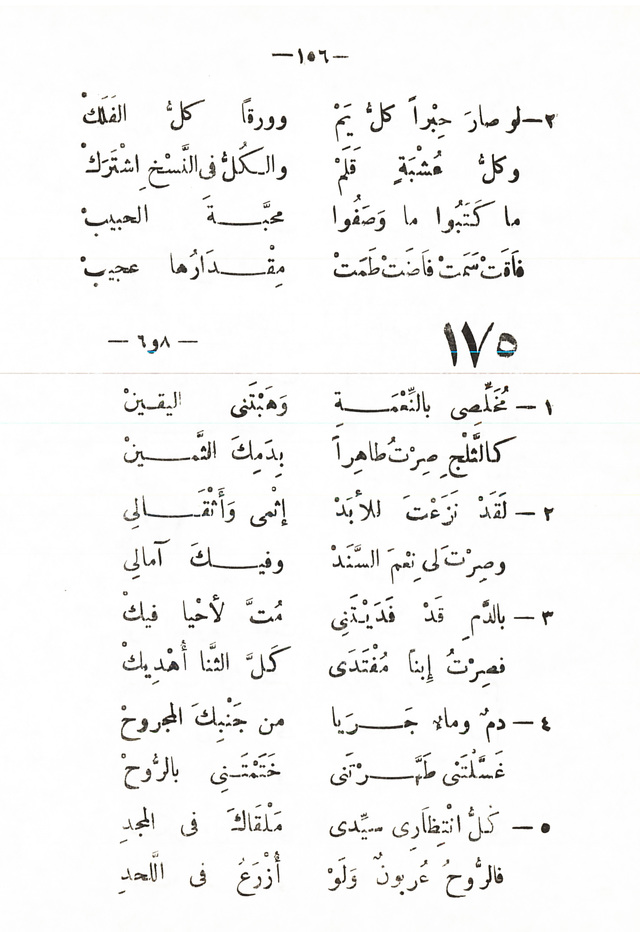 —١٥٦—
٣—لو صارَ حِبْراً كلُّ يَمْ وورقاً كلُّ الفَلَكْ
وكلُّ عُشْبَةٍ قَلَمْ والكُلُّ فى النَّسْخِ اشْتَرَكْ
ما كَتَبُوا ما وَصَفُوا محبَّةَ الحبيبْ
فَاقَتْ سَمَتْ فَاضَتْ طَمَتْ مِقْدَارُها عجيبْ
١٧٥ — ٨و٦ —
١ — مُخَلِّصِى بالنِّعْمَةِ وَهَبْتَنى اليقينْ
كالثَّلْجِ صِرْتُ طاهِراً بِدَمِكَ الثَّمينْ
٢ — لَقَدْ نَزَعْتَ للأبَدْ إثْمى وَأَثْقَالِى
وصِرْتَ لى نِعْمَ السَّنَدْ وفيكَ آمالِى
٣ — بالدَّمِ قَدْ فَدَيْتَنِى مُتَّ لأحْيا فيكْ
فصِرْتُ إبناً مُفْتَدَى كَلَّ الثَّنا أُهْدِيكْ
٤ — دمٌ وماءٌ جَرَيا من جَنْبِكَ المجروحْ
غَسَّلْتَنْى طَهَّرْتَنى خَتَمْتَنِى بالرُّوحْ
٥ — كلُّ انْتِظَارِى سيِّدى مَلْقَاكَ فى المجدِ
فالرُّوحُ عُربونٌ وَلَوْ أُزْرَعُ فى الَّلحدِ